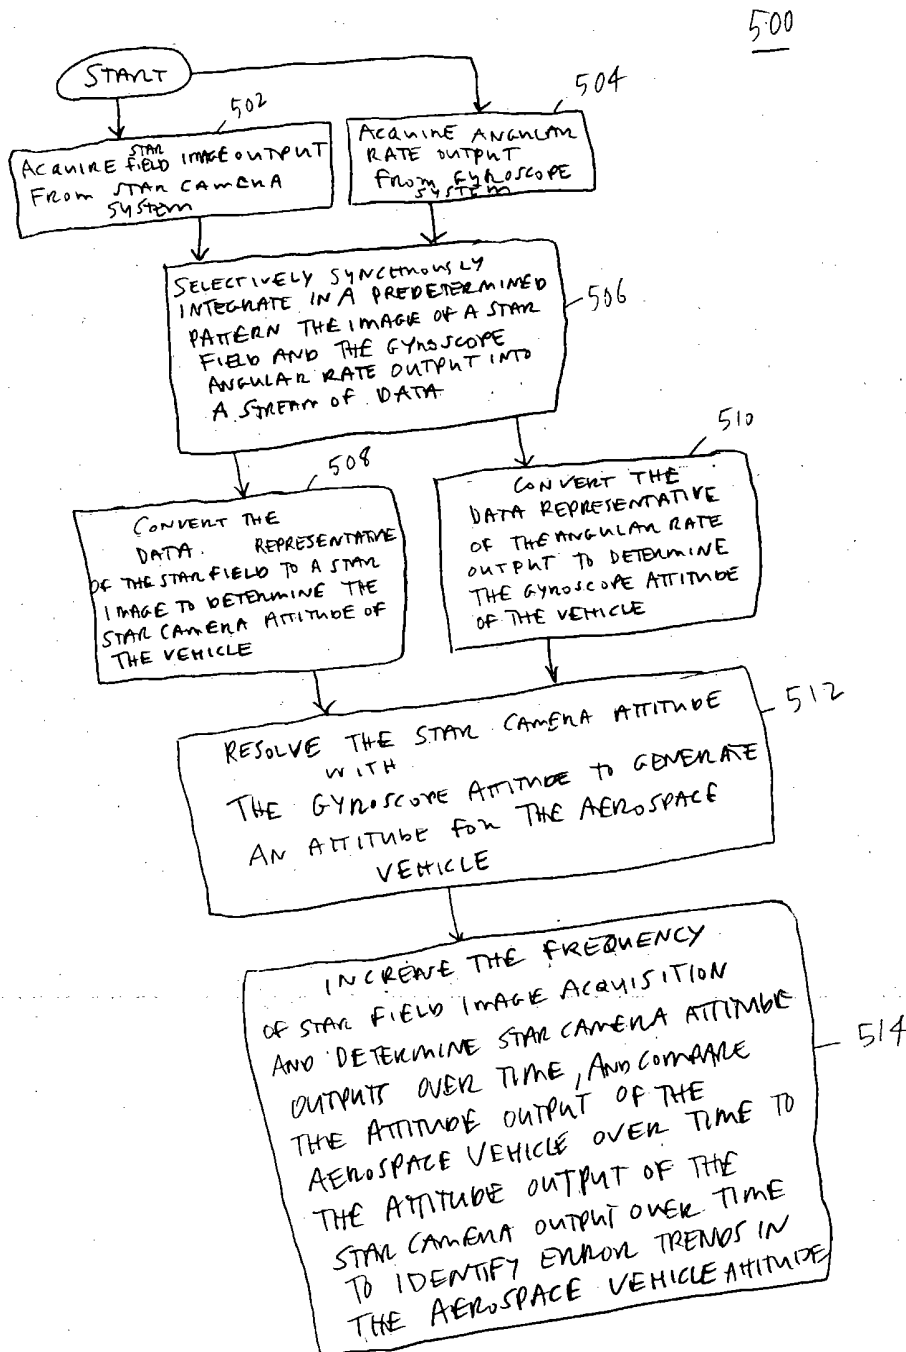 500
START
502
ACQUIRE STAR FIELD IMAGE OUTPUT
FROM STAR CAMERA
SYSTEM
504
ACQUIRE ANGULAR
RATE OUTPUT
FROM GYROSCOPE
SYSTEM
SELECTIVELY SYNCHNOUSLY
INTEGRATE IN A PREDETERMINED
PATTERN THE IMAGE OF A STAR
FIELD AND THE GYROSCOPE
ANGULAR RATE OUTPUT INTO
A STREAM OF DATA
506
508
CONVERT THE
DATA REPRESENTATIVE
OF THE STAR FIELD TO A STAR
IMAGE TO DETERMINE THE
STAR CAMERA ATTITUDE OF
THE VEHICLE
510
CONVERT THE
DATA REPRESENTATIVE
OF THE ANGULAR RATE
OUTPUT TO DETERMINE
THE GYROSCOPE ATTITUDE
OF THE VEHICLE
RESOLVE THE STAR CAMERA ATTITUDE
WITH
THE GYROSCOPE ATTITUDE TO GENERATE
AN ATTITUDE FOR THE AEROSPACE
VEHICLE
512
INCREASE THE FREQUENCY
OF STAR FIELD IMAGE ACQUISITION
AND DETERMINE STAR CAMERA ATTITUDE
OUTPUTS OVER TIME, AND COMPARE
THE ATTITUDE OUTPUT OF THE
AEROSPACE VEHICLE OVER TIME TO
THE ATTITUDE OUTPUT OF THE
STAR CAMERA OUTPUT OVER TIME
TO IDENTIFY ERROR TRENDS IN
THE AEROSPACE VEHICLE ATTITUDE
514